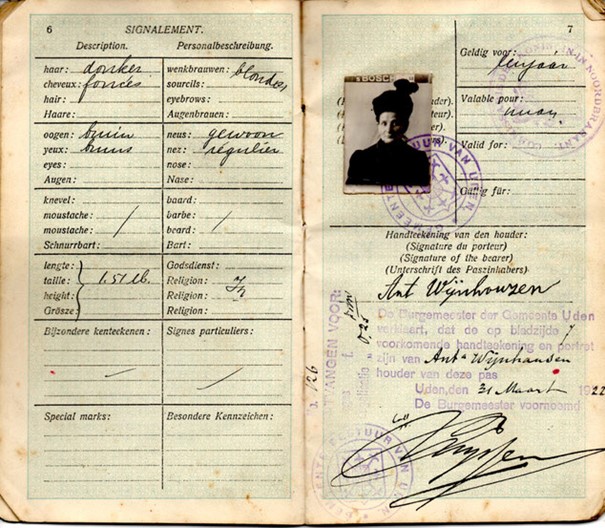 6
SIGNALEMENT.
Description. Personalbeschreibung.
haar: donker
cheveux: foncés
hair:
Haare:
wenkbrauwen: blonde
sourcils:
eyebrows:
Augenbrauen:
oogen: bruin
yeux: bruns
eyes:
Augen:
neus: gewoon
nez: régulier
nose:
Nase:
knevel:
moustache: /
moustache:
Schnurrbart:
baard:
barbe: /
beard:
Bart:
lengte:
taille: 1.51
height:
Grösze:
Godsdienst:
Religion:
Religion:
Religion:
Bijzondere kenteekenen:
Signes particuliers:
Special marks:
Besondere Kennzeichen:
7
Geldig voor:
Valable pour:
Valid for:
Gültig für:
BOSCH
GEMEENTE UDEN
Handteekening van den houder:
(Signature du porteur)
(Signature of the bearer)
(Unterschrift des Paszinhabers)
Ant Wijnhouzen
De Burgemeester der Gemeente Uden
verklaart, dat de op bladzijde 7
voorkomende handteekening en portret
zijn van Anta Wijnhausen
houder van deze pas
Uden, den 31 Maart 1922
De Burgemeester voornoemd